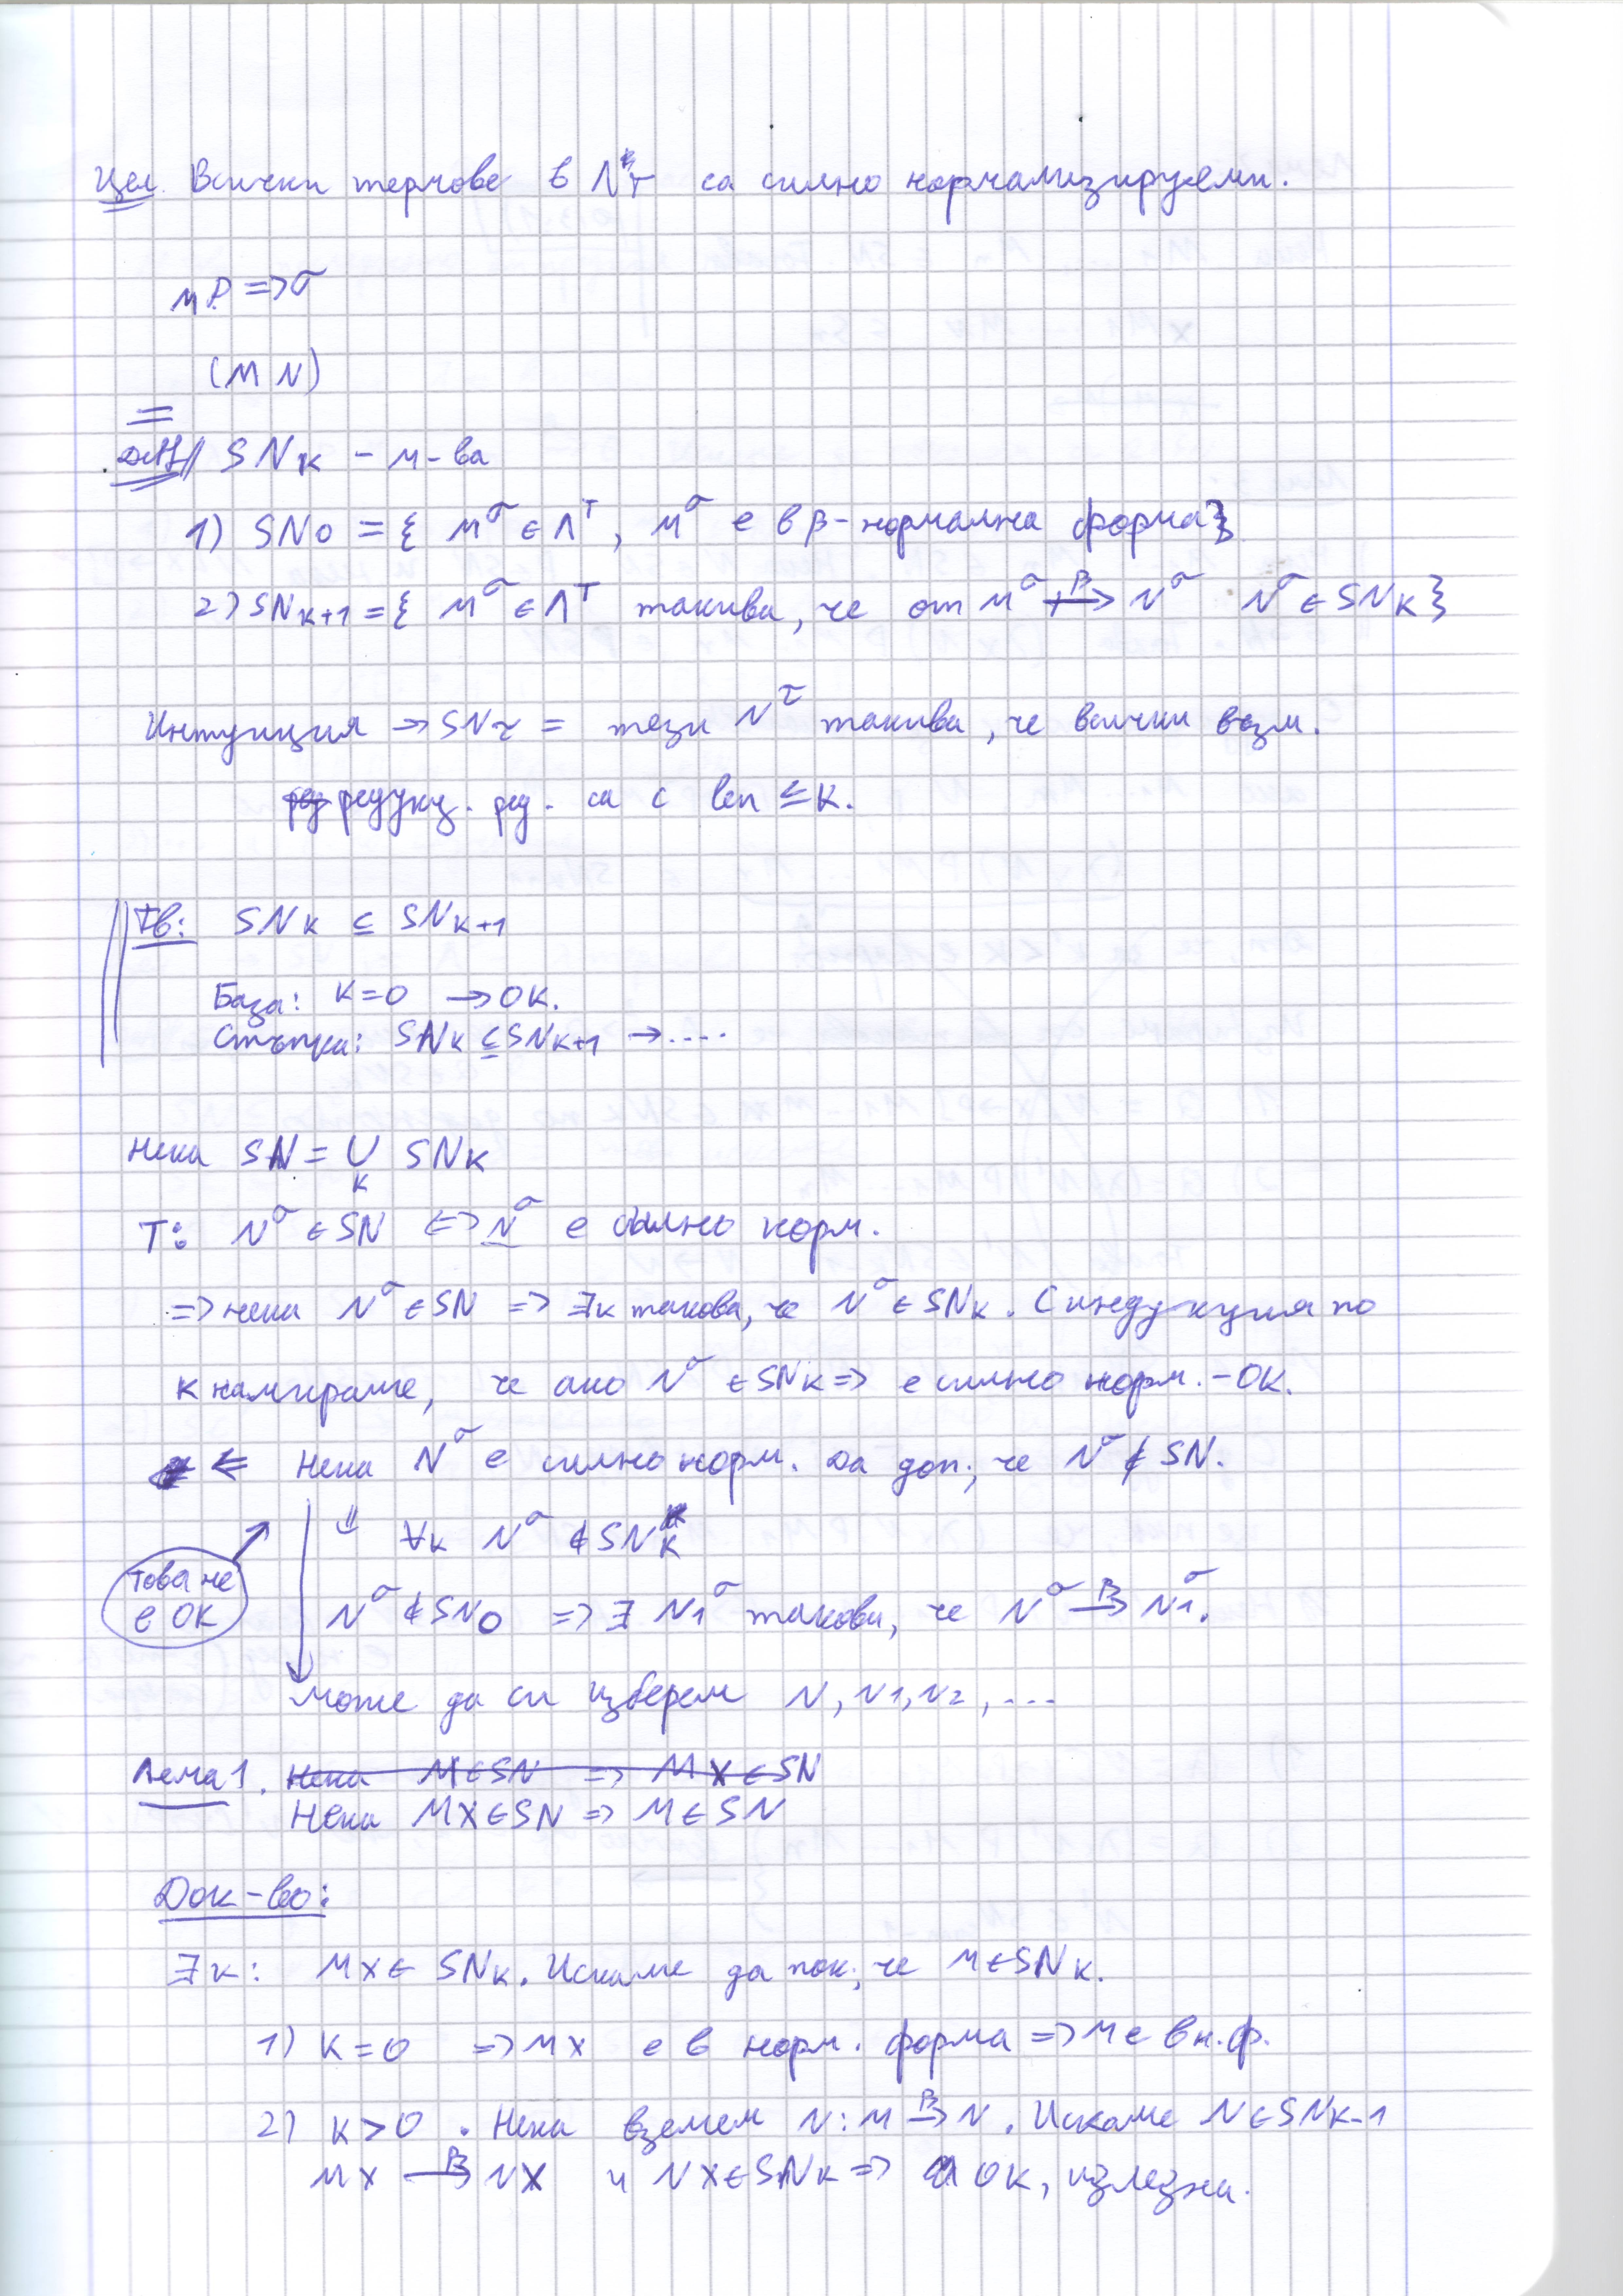 Цел. Всички термове в Λ^T са силно нормализируеми.
M ρ => σ
(M N)
Деф// SN_K - м-ва
1) SN_0 = { M^σ ∈ Λ^T, M^σ е в β-нормална форма}
2) SN_{K+1} = { M^σ ∈ Λ^T такива, че от M^σ →^β N^σ N^σ ∈ SN_K }
Интуиция → SN_τ = тези N^τ такива, че всички възм.
редукц. ред. са с len ≤ K.
Тв: SN_K ⊆ SN_{K+1}
База: K=0 → OK.
Стъпка: SN_K ⊆ SN_{K+1} → ....
Нека SN = ∪_K SN_K
Т: N^σ ∈ SN <=> N^σ е силно норм.
=> нека N^σ ∈ SN => ∃k такова, че N^σ ∈ SN_K. С индукция по
K намираме, че ако N^σ ∈ SN_K => е силно норм. - OK.
<= Нека N^σ е силно норм. Да доп., че N^σ ∉ SN.
⇓ ∀k N^σ ∉ SN_K
това не
е ОК
N^σ ∉ SN_0 => ∃ N1^σ такова, че N^σ →^β N1^σ.
Може да си изберем N, N1, N2, ...
Лема 1. Нека M∈SN => MX∈SN
Нека MX∈SN => M∈SN
Док-во:
∃k: MX∈ SN_K. Искаме да пок., че M∈SN_K.
1) K=0 => MX е в норм. форма => M е в н.ф.
2) K>0. Нека вземем N: M →^β N. Искаме N∈SN_{K-1}
MX →^β NX и NX∈SN_K => OK, излезна.